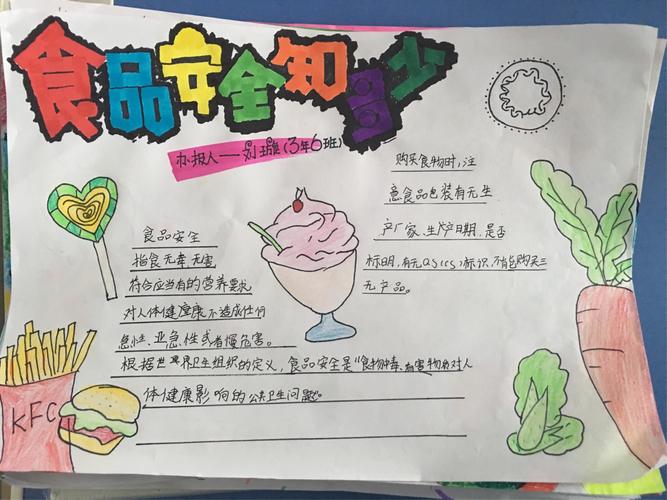 食品安全知多少
办报人——刘璇(3年6班)
购买食物时,注
意食品包装有无生
产厂家、生产日期,是否
标明,有无QS(CS)标识,不能购买三
无产品。
食品安全
指食无毒、无害
符合应当有的营养要求
对人体健康不造成任何
急性、亚急性或者慢危害。
根据世界卫生组织的定义,食品安全是“食物中毒、有害物质对人
体健康影响的公共卫生问题”
KFC